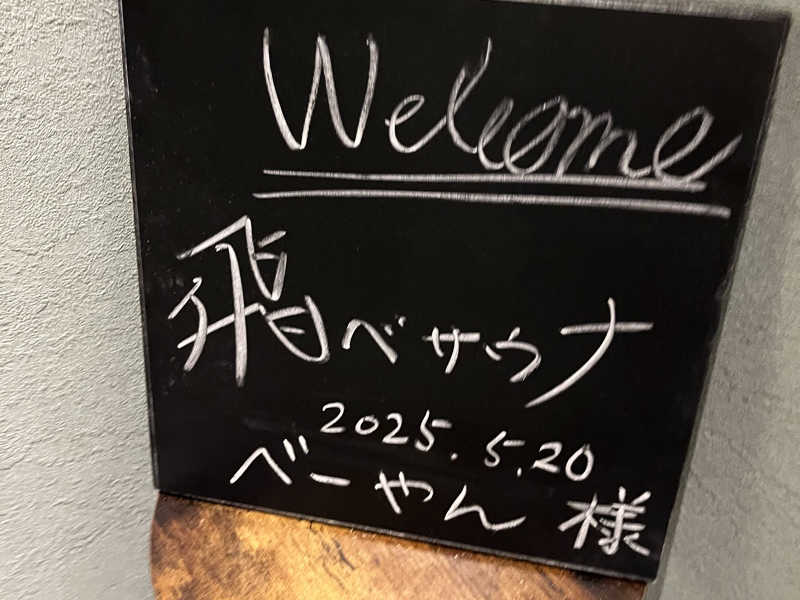 Welcome
飛べサウナ
2025.5.20
べーやん 様